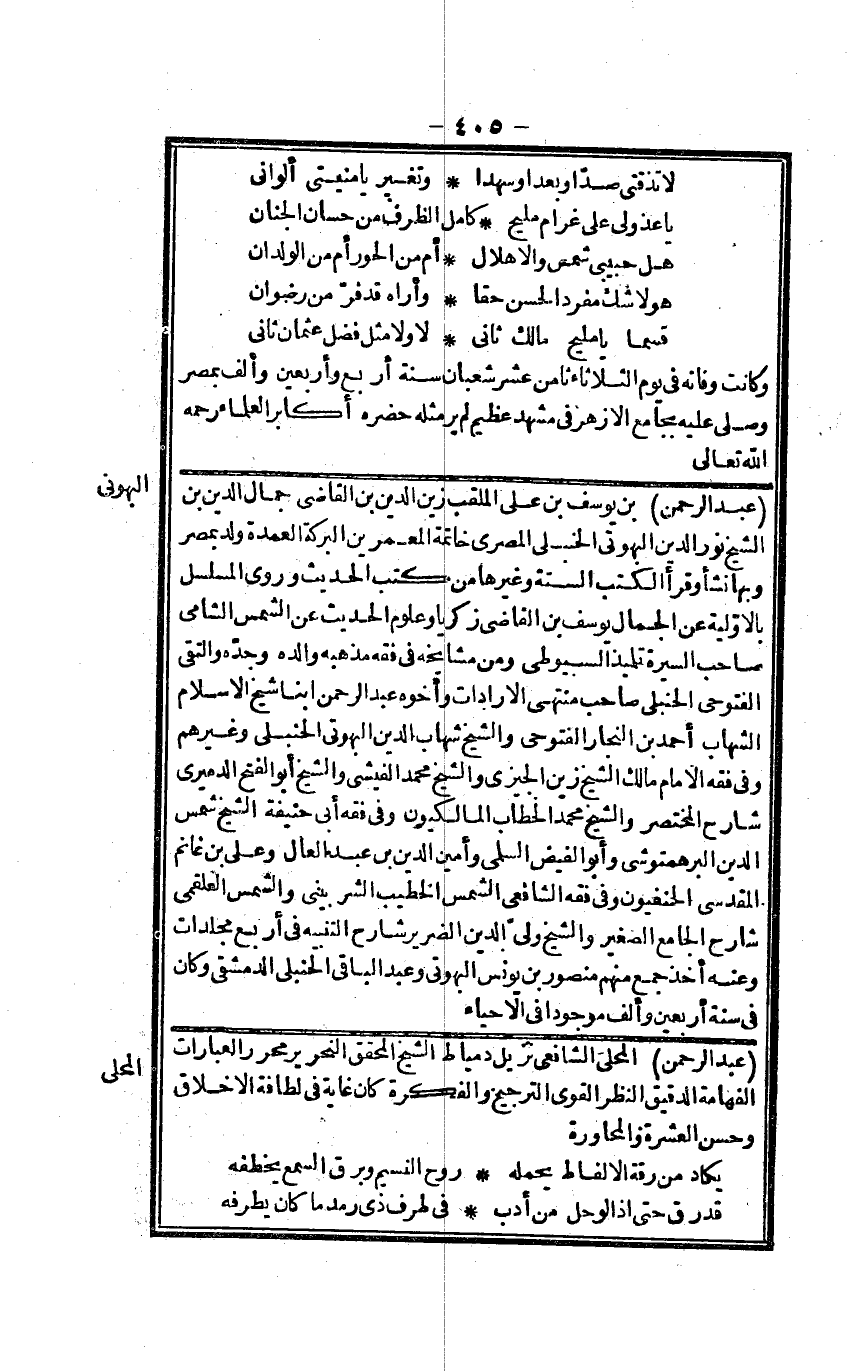 - ٤٠٥ -
لا تذقنى صدّا وبعدا وسهدا * وتغسير يا منيتى ألوانى
يا عذولى على غرام مليح * كامل الظرف من حسان الجنان
هل حبيبى شمس والا هلال * أم من الحور أم من الولدان
هو لا شك مفرد الحسن حقا * وأراه قد فرّ من رضوان
قسما يا مليح مالك ثانى * لا ولا مثل فضل عثمان ثانى
وكانت وفاته فى يوم الثلاثاء ثامن عشر شعبان سنة أربع وأربعين وألف بمصر
وصلى عليه بجامع الازهر فى مشهد عظيم لم ير مثله حضره أكابر العلماء رحمه
الله تعالى
البهوتى
(عبد الرحمن) بن يوسف بن على الملقب زين الدين بن القاضى جمال الدين بن
الشيخ نور الدين البهوتى الحنبلى المصرى خاتمة المعمرين البركة العمدة ولد بمصر
وبها نشأ وقرأ الكتب الستة وغيرها من كتب الحديث وروى المسلسل
بالاوّلية عن الجمال يوسف بن القاضى زكريا وعلوم الحديث عن الشمس الشامى
صاحب السيرة تلميذ السيوطى ومن مشايخه فى فقه مذهبه والده وجدّه والتقى
الفتوحى الحنبلى صاحب منتهى الارادات وأخوه عبد الرحمن ابنا شيخ الاسلام
الشهاب أحمد بن النجار الفتوحى والشيخ شهاب الدين البهوتى الحنبلى وغيرهم
وفى فقه الامام مالك الشيخ زين الجيزى والشيخ محمد الفيشى والشيخ أبو الفتح الدميرى
شارح المختصر والشيخ محمد الحطاب المالكيون وفى فقه أبى حنيفة الشيخ شمس
الدين البرهمتوشى وأبو الفيض السلمى وأمين الدين بن عبد العال وعلى بن غانم
المقدسى الحنفيون وفى فقه الشافعى الشمس الخطيب الشربينى والشمس العلقمى
شارح الجامع الصغير والشيخ ولىّ الدين الضرير شارح التنبيه فى أربع مجلدات
وعنه أخذ جمع منهم منصور بن يونس البهوتى وعبد الباقى الحنبلى الدمشقى وكان
فى سنة أربعين وألف موجودا فى الاحياء
المحلى
(عبد الرحمن) المحلى الشافعى نزيل دمياط الشيخ المحقق النحرير محرر العبارات
الفهامة الدقيق النظر القوى الترجيح والفكرة كان غاية فى لطافة الاخلاق
وحسن العشرة والمحاورة
يكاد من رقة الالفاظ يحمله * روح النسيم وبرق السمع يخطفه
قد رق حتى اذا لو حل من أدب * فى طرف ذى رمد ما كان يطرفه